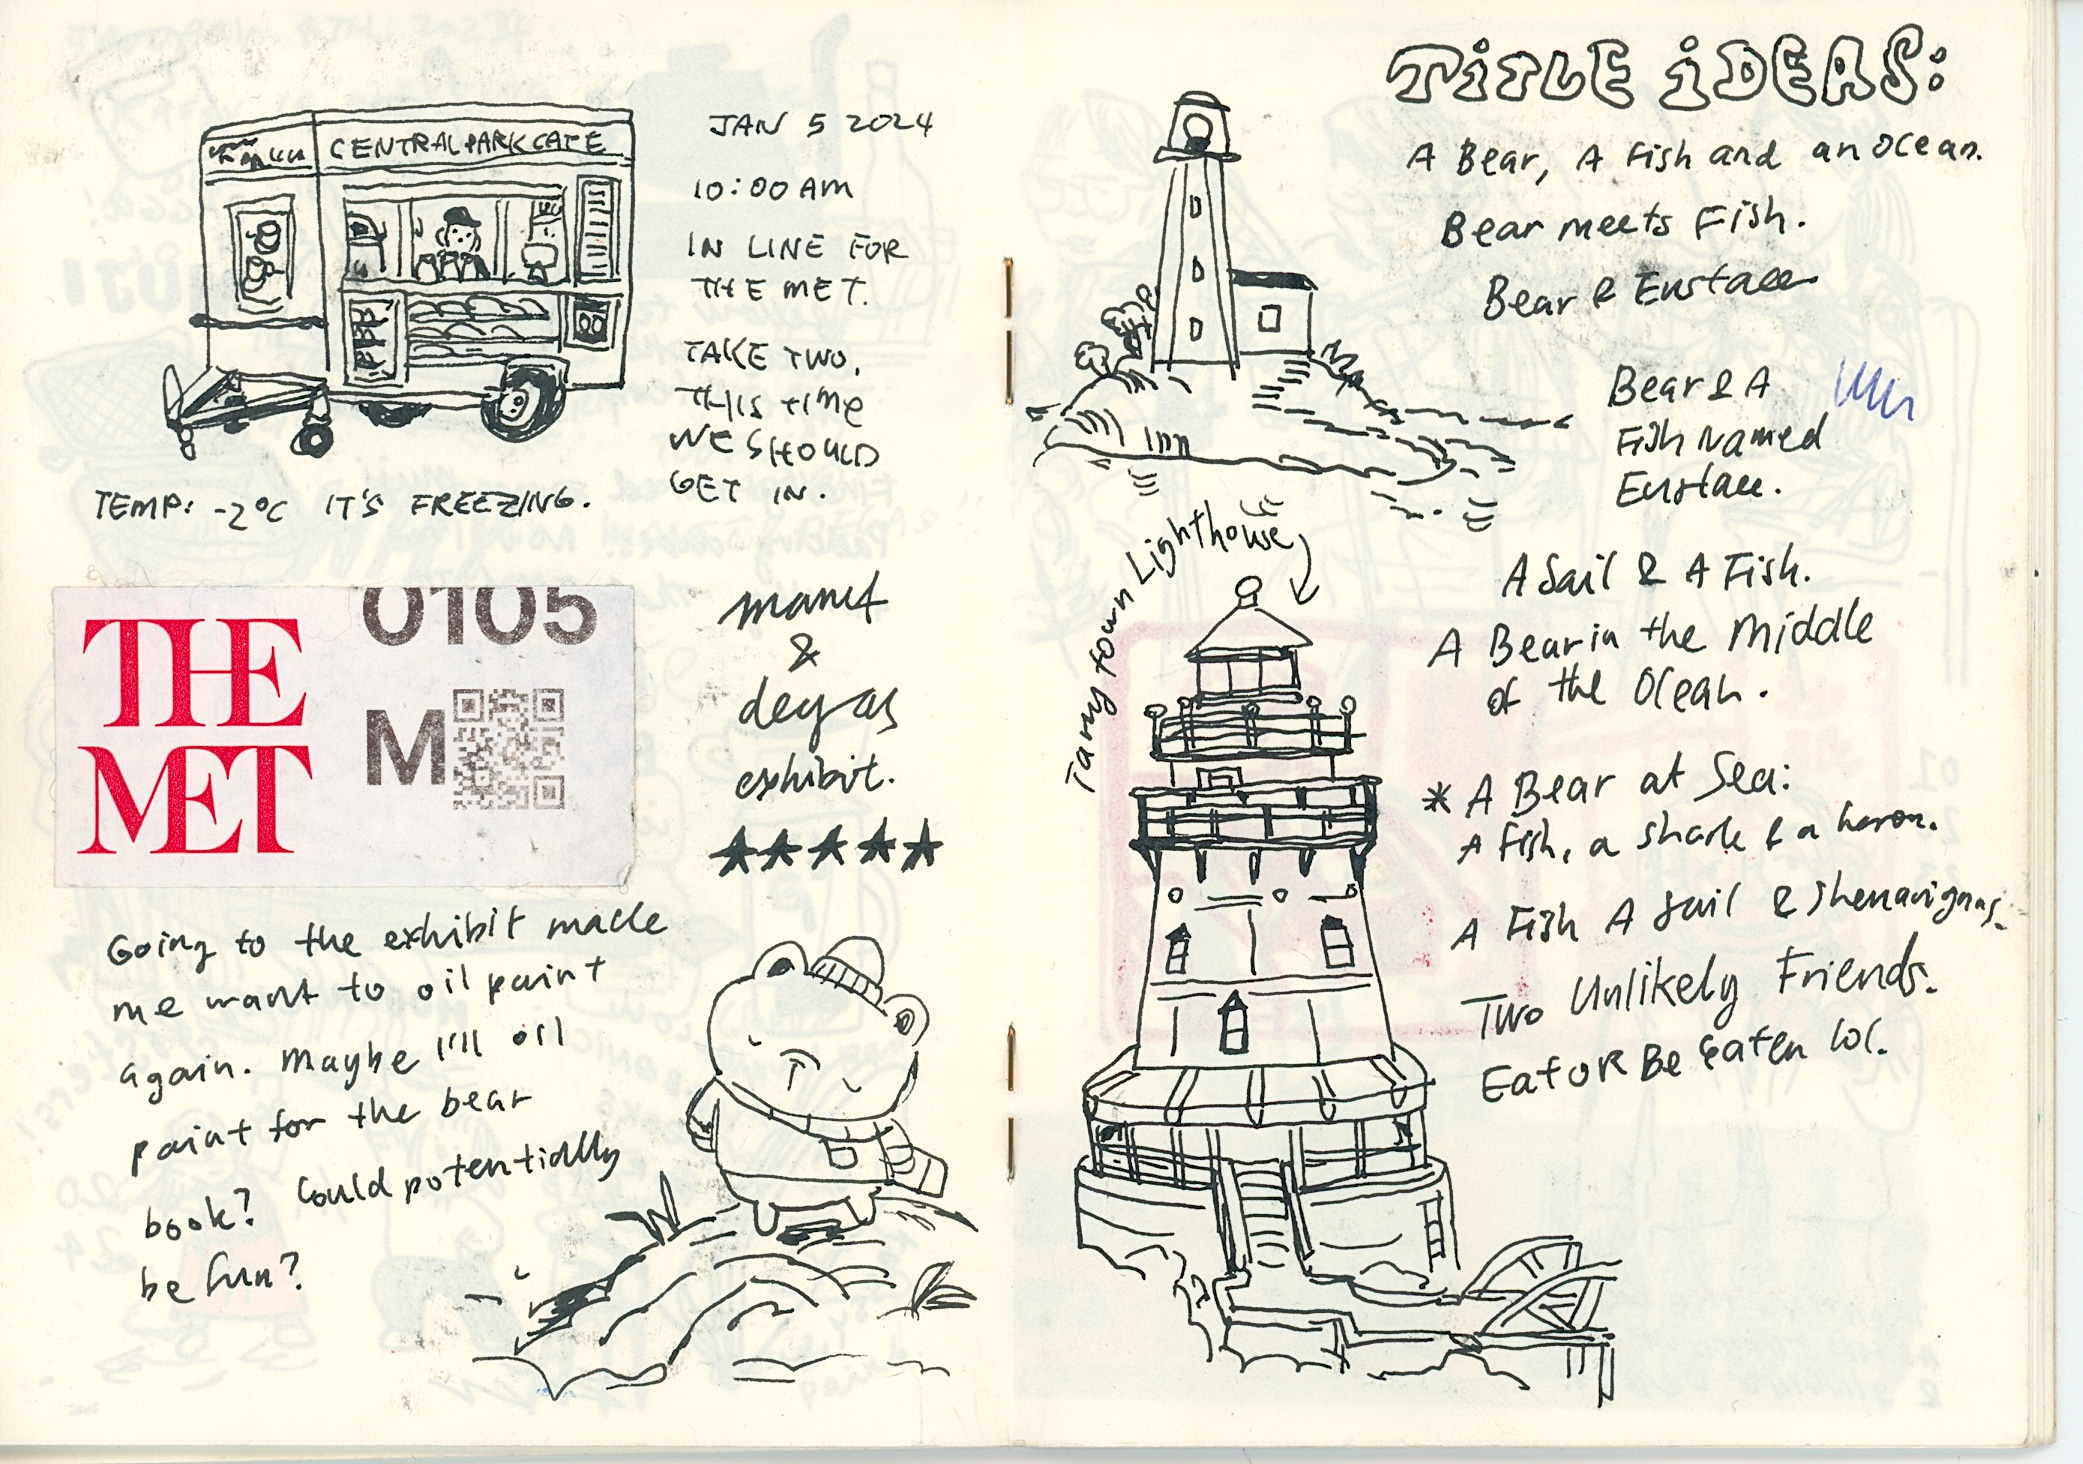 CENTRAL PARK CAFE
JAN 5 2024
10:00 AM
IN LINE FOR
THE MET.
TAKE TWO.
THIS TIME
WE SHOULD
GET IN.
TEMP: -2°C IT'S FREEZING.
THE
MET
0105
M
manet
&
degas
exhibit.
★★★★★
Going to the exhibit made
me want to oil paint
again. Maybe I'll oil
paint for the bear
book? Could potentially
be fun?
TITLE IDEAS:
A Bear, A Fish and an Ocean.
Bear meets Fish.
Bear & Eustace
Bear & A
Fish Named
Eustace.
Tarrytown Lighthouse
A Sail & A Fish.
A Bear in the Middle
of the Ocean.
* A Bear at Sea:
A fish, a shark & a heron.
A Fish A Sail & Shenanigans.
Two Unlikely Friends.
Eat OR Be Eaten lol.